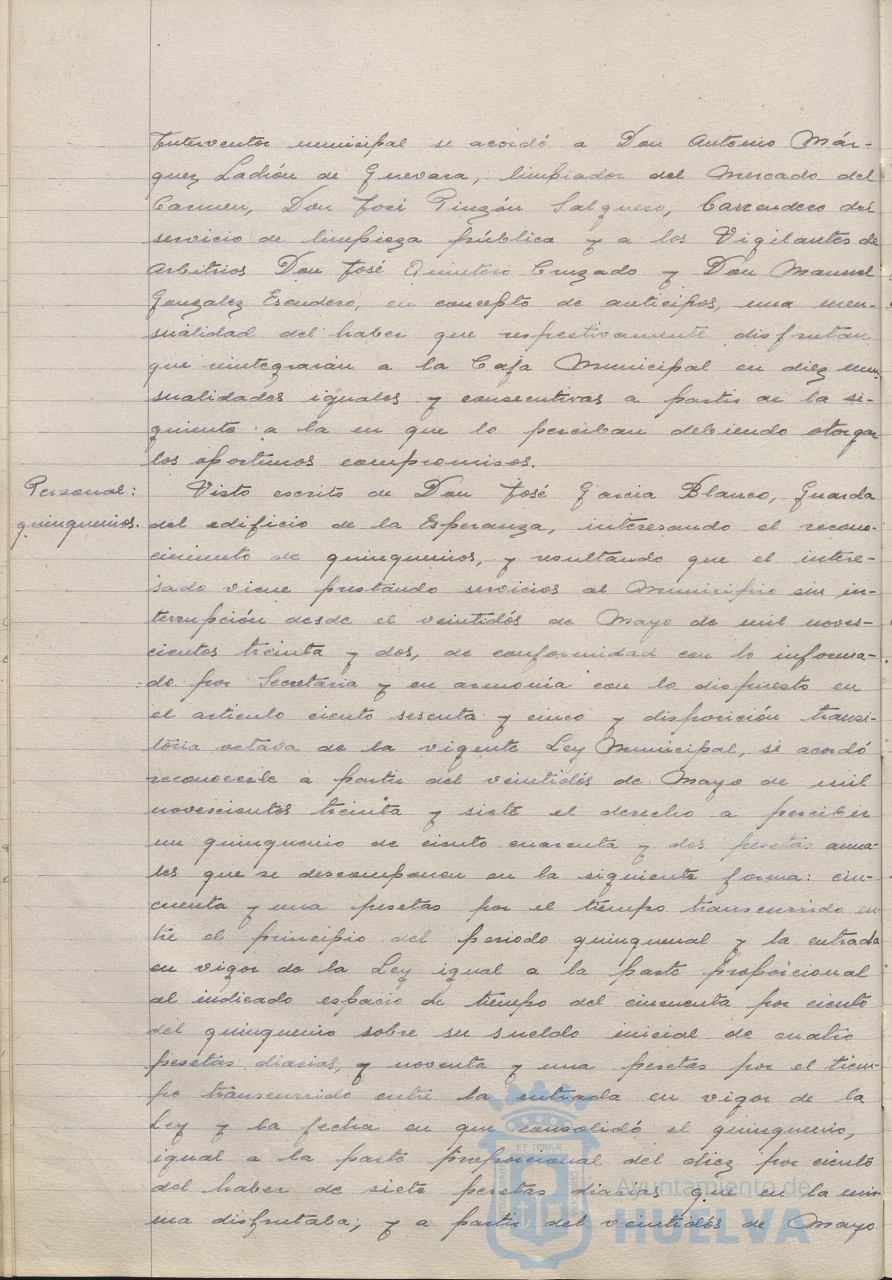 Interventor municipal se acordó a Don Antonio Már-
quez Ladrón de Guevara, limpiador del Mercado del
Carmen, Don José Pinzón Salguero, Carrendero del
servicio de limpieza pública y a los Vigilantes de
Arbitrios Don José Quintero Cruzado y Don Manuel
Gonzalez Escudero, en concepto de anticipos, una men-
sualidad del haber que respectivamente disfrutan
que reintegrarán a la Caja Municipal en diez men-
sualidades iguales y consecutivas a partir de la si-
guiente a la en que lo perciban debiendo otorgar
los oportunos compromisos.
Personal:
quinquenios.
Visto escrito de Don José Garcia Blanco, Guarda
del edificio de la Esperanza, interesando el recono-
cimiento de quinquenios, y resultando que el intere-
sado viene prestando servicios al Municipio sin in-
terrupción desde el veintidós de Mayo de mil noves-
cientos treinta y dos, de conformidad con lo informa-
do por Secretaria y en armonía con lo dispuesto en
el artículo ciento sesenta y cinco y disposición transi-
toria octava de la vigente Ley Municipal, se acordó
reconocerle a partir del veintidós de Mayo de mil
novescientos treinta y siete el derecho a percibir
un quinquenio de ciento cuarenta y dos pesetas anua-
les que se descomponen en la siguiente forma: cin-
cuenta y una pesetas por el tiempo transcurrido en-
tre el principio del periodo quinquenal y la entrada
en vigor de la Ley igual a la parte proporcional
al indicado espacio de tiempo del cincuenta por ciento
del quinquenio sobre su sueldo inicial de cuatro
pesetas diarias, y noventa y una pesetas por el tiem-
po transcurrido entre la entrada en vigor de la
Ley y la fecha en que consolidó el quinquenio,
igual a la parte proporcional del diez por ciento
del haber de siete pesetas diarias que en la mis-
ma disfrutaba; y a partir del veintidós de Mayo
Ayuntamiento de
HUELVA